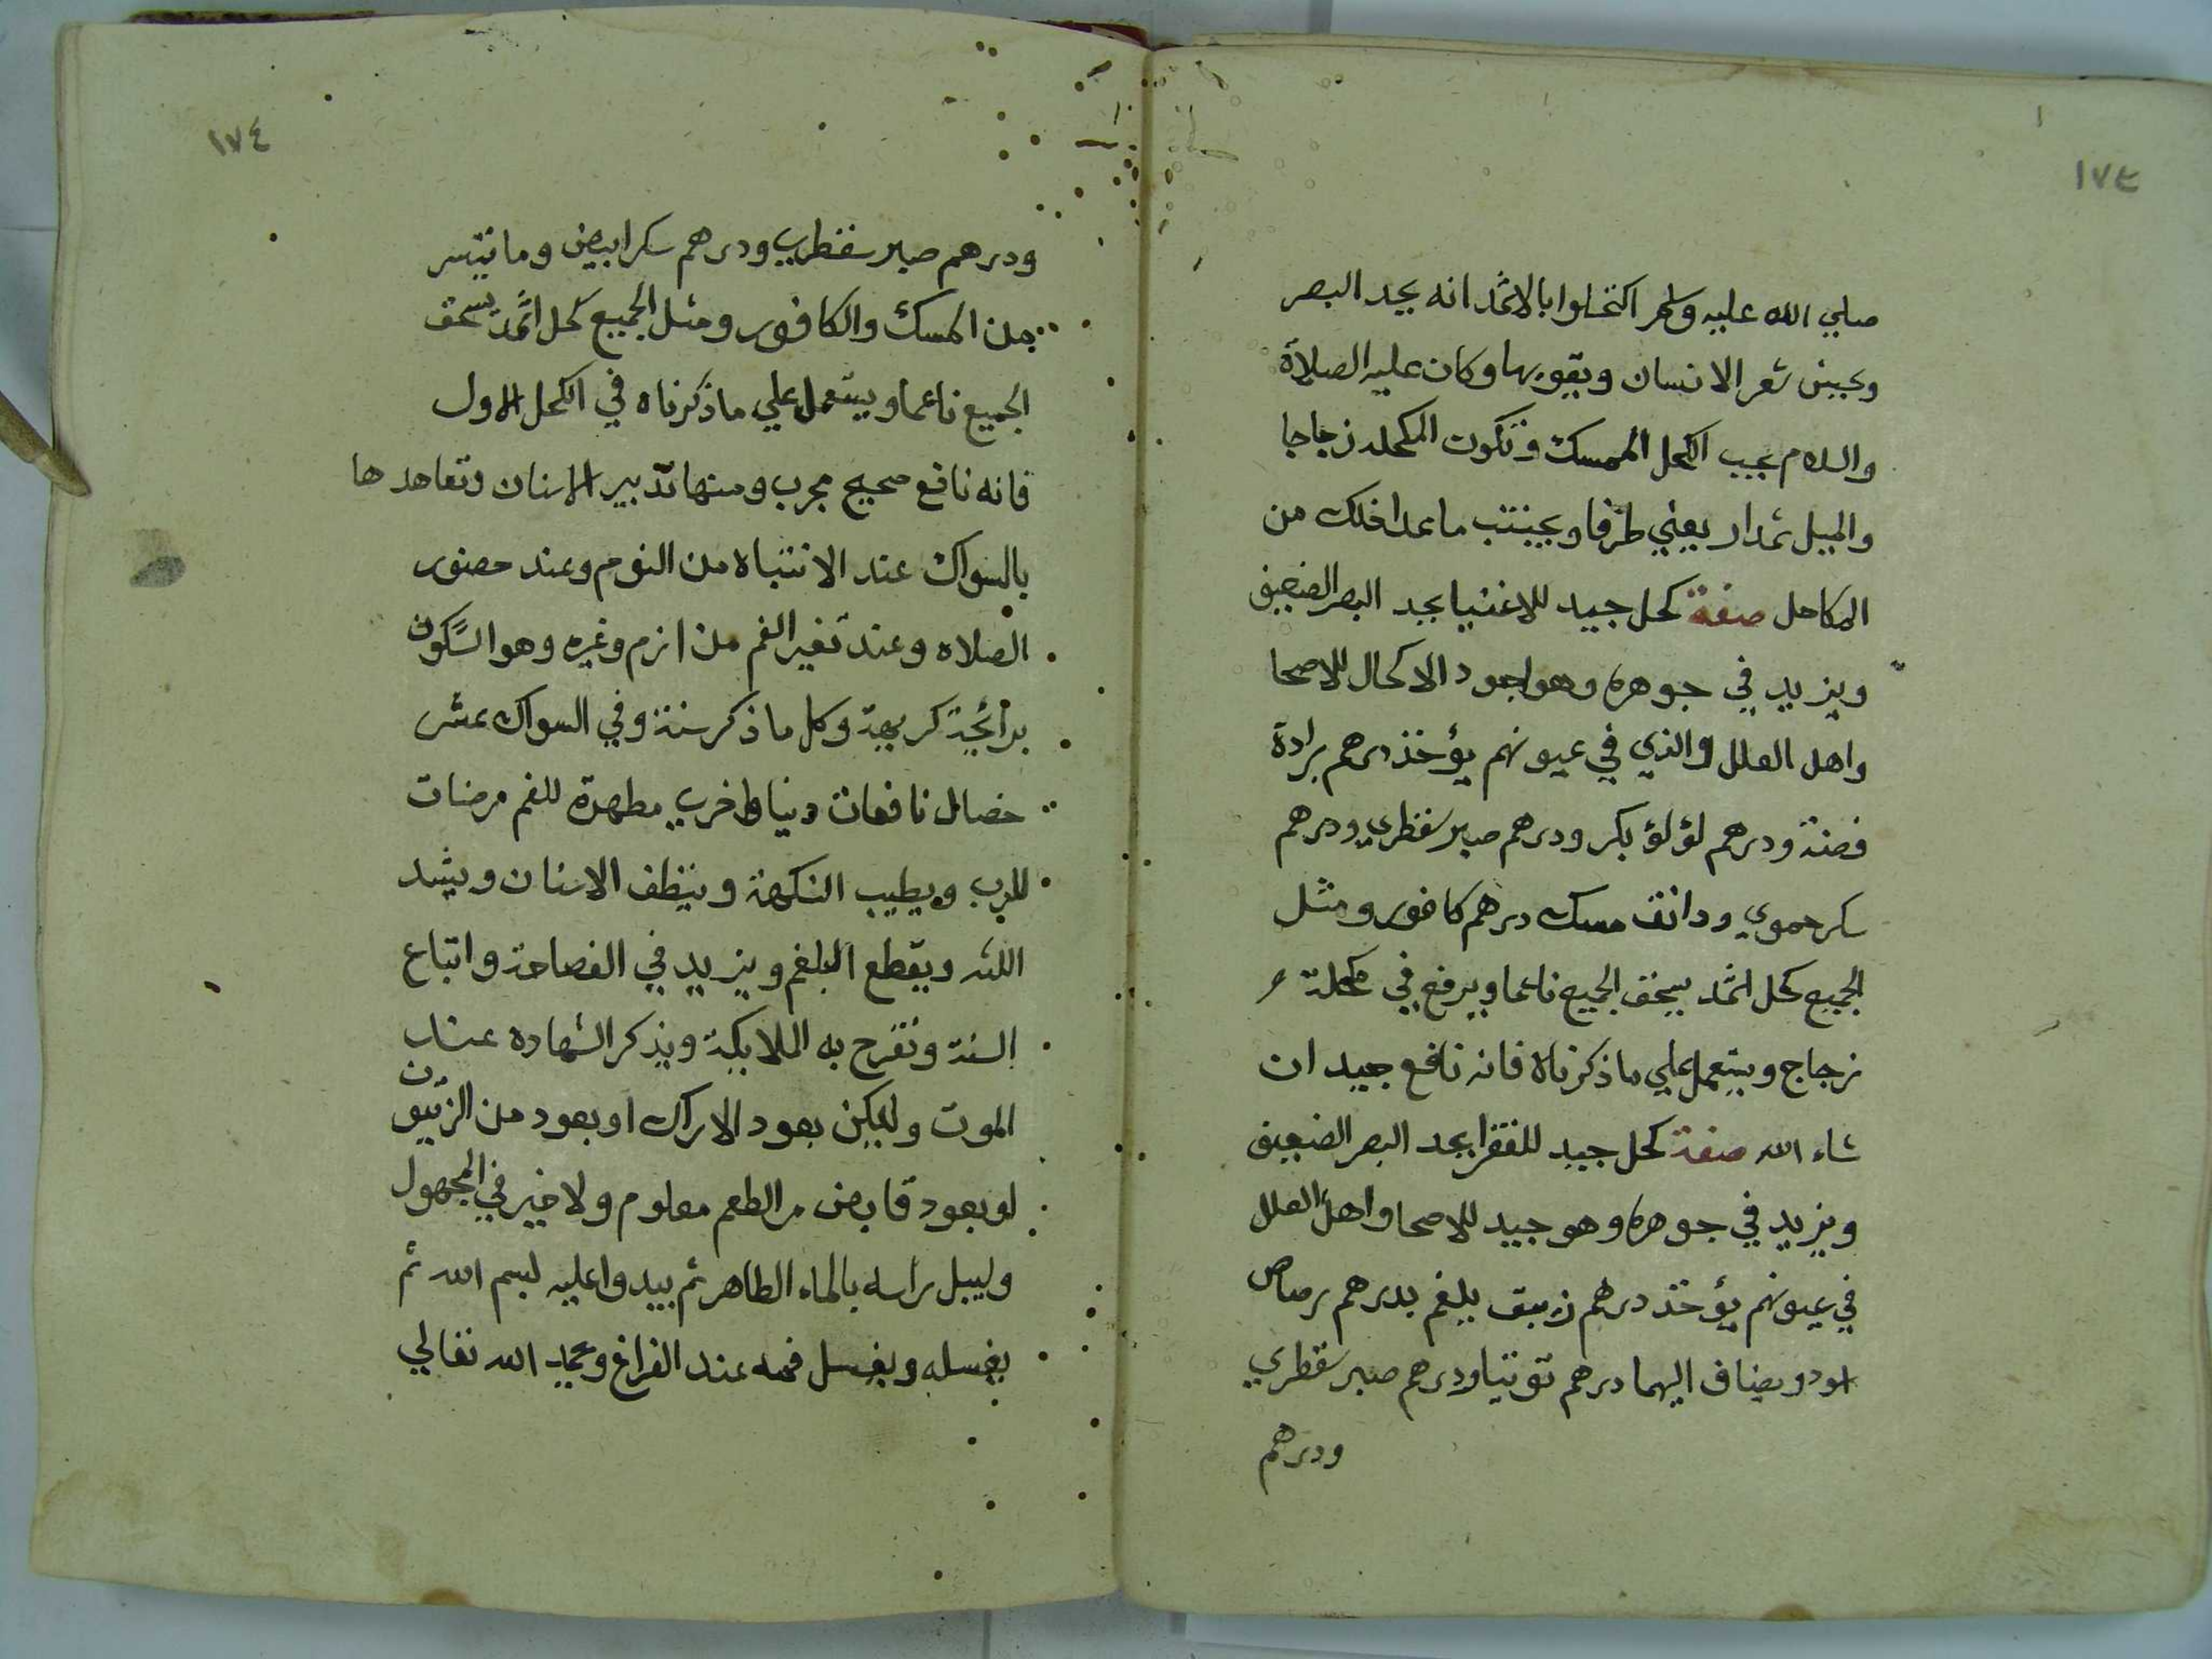 ١٧٣
صلي الله عليه وسلم اكتحلوا بالاثمد انه يحد البصر
ويحسن شعر الانسان ويقويها وكان عليه الصلاة
والسلام يحب الكحل الممسك وتكون المكحله زجاجا
والميل ثمدار يعني طرفا ويجتنب ماعدا ذلك من
المكاحل صفة كحل جيد للاغنيا يحد البصر الضعيف
ويزيد في جوهره وهو اجود الاكحال للاصحا
واهل العلل والذي في عيونهم يؤخذ درهم برادة
فضة ودرهم لؤلؤ بكر ودرهم صبر سقطري ودرهم
سكر حموي ودانق مسك درهم كافور ومثل
الجميع كحل اثمد يسحق الجميع ناعما ويرفع في مكحلة
زجاج ويستعمل علي ماذكرناه فانه نافع جيد ان
شاء الله صفة كحل جيد للفقرا يحد البصر الضعيف
ويزيد في جوهره وهو جيد للاصحا واهل العلل
في عيونهم يؤخذ درهم زيبق يلغم بدرهم رصاص
اسود ويضاف اليهما درهم توتيا ودرهم صبر سقطري
ودرهم
١٧٤
ودرهم صبر سقطري ودرهم سكر ابيض وما تيسر
من المسك والكافور ومثل الجميع كحل اثمد يسحق
الجميع ناعما ويستعمل علي ماذكرناه في الكحل الاول
فانه نافع صحيح مجرب ومنها تدبير الاسنان وتعاهدها
بالسواك عند الانتباه من النوم وعند حضور
الصلاه وعند تغير الفم من ازم وغيره وهو السكون
برائحة كريهة وكل ماذكر سنة وفي السواك عشر
خصال نافعات دنيا واخري مطهرة للفم مرضات
للرب ويطيب النكهة وينظف الاسنان ويشد
اللثه ويقطع البلغم ويزيد في الفصاحة واتباع
السنة وتفرح به الملايكة ويذكر الشهاده عند
الموت وليكن بعود الاراك او بعود من الزيتون
او بعود قابض مر الطعم معلوم ولا خير في المجهول
وليبل راسه بالماء الطاهر ثم يبدوا عليه لبسم الله ثم
يغسله ويغسل فمه عند الفراغ ويحمد الله تعالي